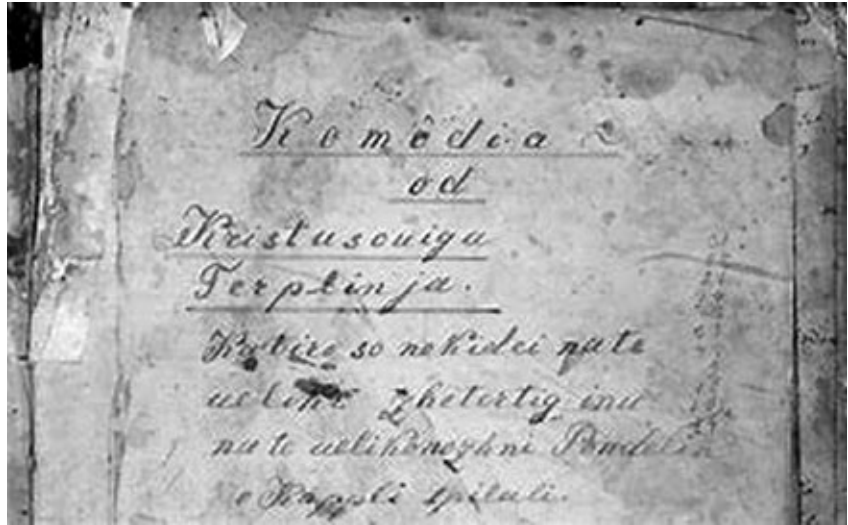 Komôdia
od
Kristusouiga
Terplinja.
Katire so nekidei na te
uelike zhetertig inu
na te uelikonozhni Pondelik
v Kappli spilali.